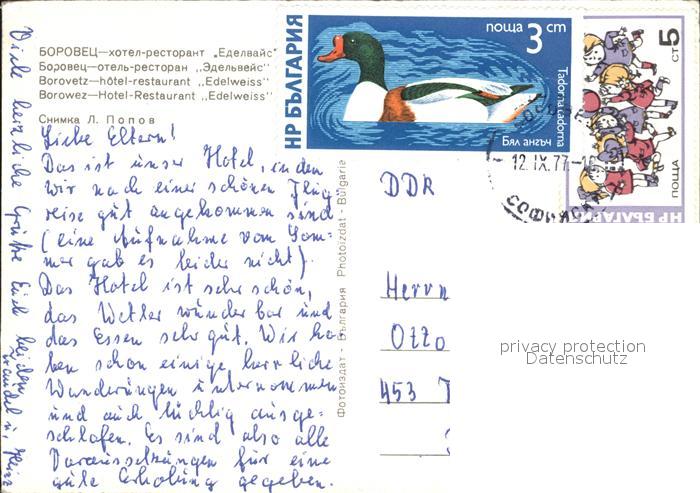 БОРОВЕЦ—хотел-ресторант „Еделвайс"
Боровец—отель-ресторан ,,Эдельвейс"
Borovetz—hôtel-restaurant ,,Edelweiss"
Borowez—Hotel-Restaurant ,,Edelweiss"
Снимка Л. Попов
Liebe Eltern!
Das ist unser Hotel, in den
wir nach einer schönen Flug-
reise gut angekommen sind
(eine Aufnahme vom Som-
mer gab es leider nicht).
Das Hotel ist sehr schön,
das Wetter wunderbar und
das Essen sehr gut. Wir ha-
ben schon einige herrliche
Wanderungen unternommen
und auch tüchtig ausge-
schlafen. Es sind also alle
Voraussetzungen für eine
gute Erholung gegeben.
Viele herzliche Grüße Euch beiden
u. Heinz
Фотоиздат - България Photoizdat - Bulgarie
НР БЪЛГАРИЯ
поща 3 ст
Tadorna tadorna
Бял ангъч
5
ст
ПОЩА
НР БЪЛГАРИЯ
12.IX.77.-1
DDR
Herrn
Otto
453
privacy protection
Datenschutz